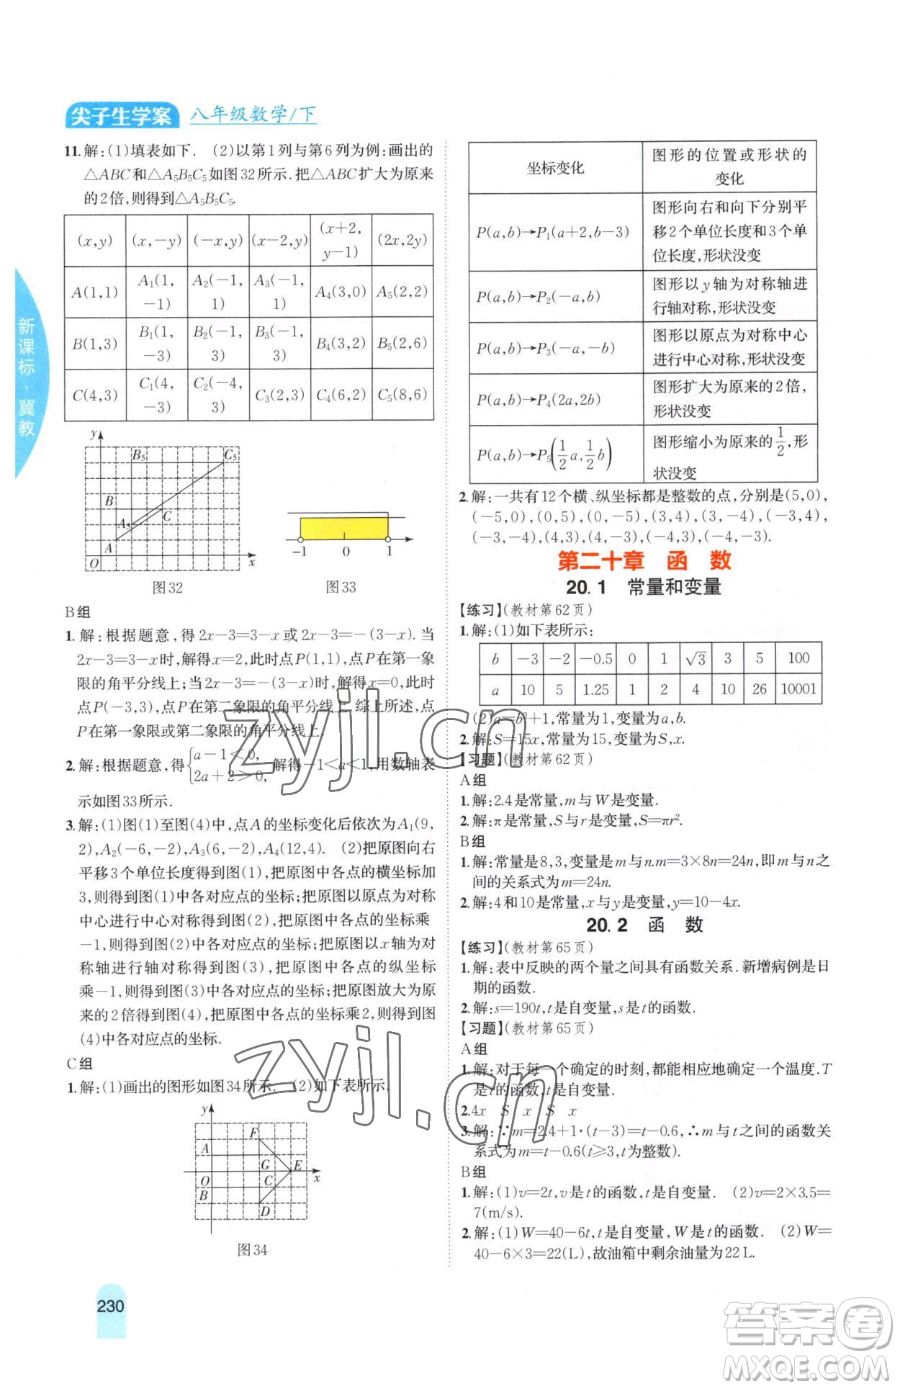 尖子生学案 八年级数学/下
11.解:(1)填表如下. (2)以第1列与第6列为例:画出的
△ABC和△A₅B₅C₅如图32所示.把△ABC扩大为原来
的2倍,则得到△A₅B₅C₅.
(x,y) (x,-y) (-x,y) (x-2,y) (x+2,y-1) (2x,2y)
A(1,1) A₁(1,-1) A₂(-1,1) A₃(-1,1) A₄(3,0) A₅(2,2)
B(1,3) B₁(1,-3) B₂(-1,3) B₃(-1,3) B₄(3,2) B₅(2,6)
C(4,3) C₁(4,-3) C₂(-4,3) C₃(2,3) C₄(6,2) C₅(8,6)
新课标·冀教
y B₅ C₅
B
A₅ C
A
O x
-1 0 1
图32 图33
B组
1.解:根据题意,得2x-3=3-x或2x-3=-(3-x).当
2x-3=3-x时,解得x=2,此时点P(1,1),点P在第一象
限的角平分线上;当2x-3=-(3-x)时,解得x=0,此时
点P(-3,3),点P在第二象限的角平分线上.综上所述,点
P在第一象限或第二象限的角平分线上.
2.解:根据题意,得{a-1<0, 2a+2>0, 解得-1<a<1,用数轴表
示如图33所示.
3.解:(1)图(1)至图(4)中,点A的坐标变化后依次为A₁(9,
2),A₂(-6,-2),A₃(6,-2),A₄(12,4). (2)把原图向右
平移3个单位长度得到图(1),把原图中各点的横坐标加
3,则得到图(1)中各对应点的坐标;把原图以原点为对称
中心进行中心对称得到图(2),把原图中各点的坐标乘
-1,则得到图(2)中各对应点的坐标;把原图以x轴为对
称轴进行轴对称得到图(3),把原图中各点的纵坐标
乘-1,则得到图(3)中各对应点的坐标;把原图放大为原
来的2倍得到图(4),把原图中各点的坐标乘2,则得到图
(4)中各对应点的坐标.
C组
1.解:(1)画出的图形如图34所示. (2)如下表所示.
y F
A
G E
O C x
B
D
图34
230
坐标变化 图形的位置或形状的变化
P(a,b)→P₁(a+2,b-3) 图形向右和向下分别平移2个单位长度和3个单位长度,形状没变
P(a,b)→P₂(-a,b) 图形以y轴为对称轴进行轴对称,形状没变
P(a,b)→P₃(-a,-b) 图形以原点为对称中心进行中心对称,形状没变
P(a,b)→P₄(2a,2b) 图形扩大为原来的2倍,形状没变
P(a,b)→P₅(1/2a,1/2b) 图形缩小为原来的1/2,形状没变
2.解:一共有12个横、纵坐标都是整数的点,分别是(5,0),
(-5,0),(0,5),(0,-5),(3,4),(3,-4),(-3,4),
(-3,-4),(4,3),(4,-3),(-4,3),(-4,-3).
第二十章 函 数
20.1 常量和变量
【练习】(教材第62页)
1.解:(1)如下表所示:
b -3 -2 -0.5 0 1 √3 3 5 100
a 10 5 1.25 1 2 4 10 26 10001
(2)a=b²+1,常量为1,变量为a,b.
2.解:S=15x,常量为15,变量为S,x.
【习题】(教材第62页)
A组
1.解:2.4是常量,m与W是变量.
2.解:π是常量,S与r是变量,S=πr².
B组
1.解:常量是8,3,变量是m与n.m=3×8n=24n,即m与n之
间的关系式为m=24n.
2.解:4和10是常量,x与y是变量,y=10-4x.
20.2 函 数
【练习】(教材第65页)
1.解:表中反映的两个量之间具有函数关系.新增病例是日
期的函数.
2.解:s=190t,t是自变量,s是t的函数.
【习题】(教材第65页)
A组
1.解:对于每一个确定的时刻,都能得到一个确定的温度.T
是t的函数,t是自变量.
2.4x S x S x
3.解:∵m=2.4+1·(t-3)=t-0.6,∴m与t之间的函数关
系式为m=t-0.6(t≥3,t为整数).
B组
1.解:(1)v=2t,v是t的函数,t是自变量. (2)v=2×3.5=
7(m/s).
2.解:(1)W=40-6t,t是自变量,W是t的函数. (2)W=
40-6×3=22(L),故油箱中剩余油量为22 L.
zyjl.cn
zyjl.cn
答案圈
MXQE.COM